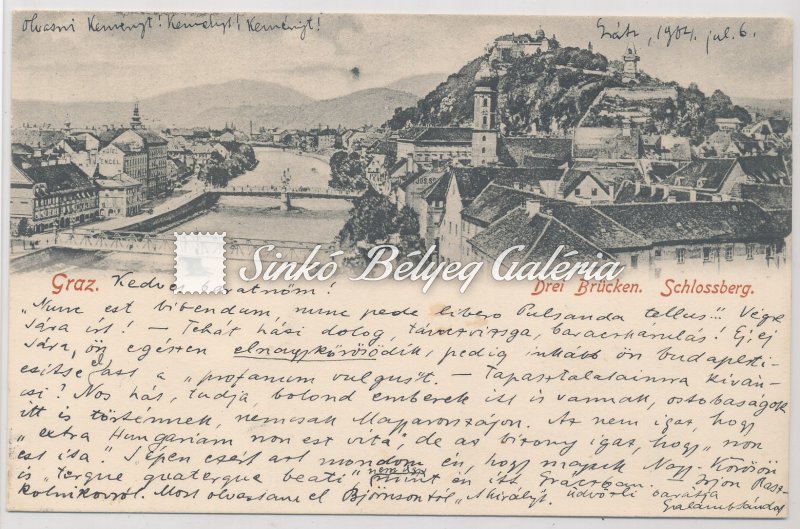 olvasni Keményt! Keményt! Keményt!
Grátz, 1904. jul. 6.
HOTEL
ENGEL
Sinkó Bélyeg Galéria
Graz.
Drei Brücken. Schlossberg.
Kedves barátnőm!
"Nunc est bibendum, nunc pede libero Pulsanda tellus"!! Végre
Sára írt! — Tehát házi dolog, tánczvizsga, baraczkhámlás! Ej, ej
Sára, ön egészen elnagykőrösödik, pedig inkább ön budapesti-
esítse el azt a "profanum vulgus"t. — Tapasztalataimra kíván-
csi? Nos hát, tudja, bolond emberek itt is vannak, ostobaságok
itt is történnek, nemcsak Magyarországon. Az nem igaz, hogy
"extra Hungariam non est vita", de az bizony igaz, hogy "non
est ita." Épen ezért azt mondom én, hogy maguk Nagy-Kőrösön
is "terque quaterque beati" nem úgy mint én itt Gráczban. — Írjon Rasz-
kolnikovról. Most olvastam el Björnsontól "A királyt". üdvözli barátja
Galamb Sándor